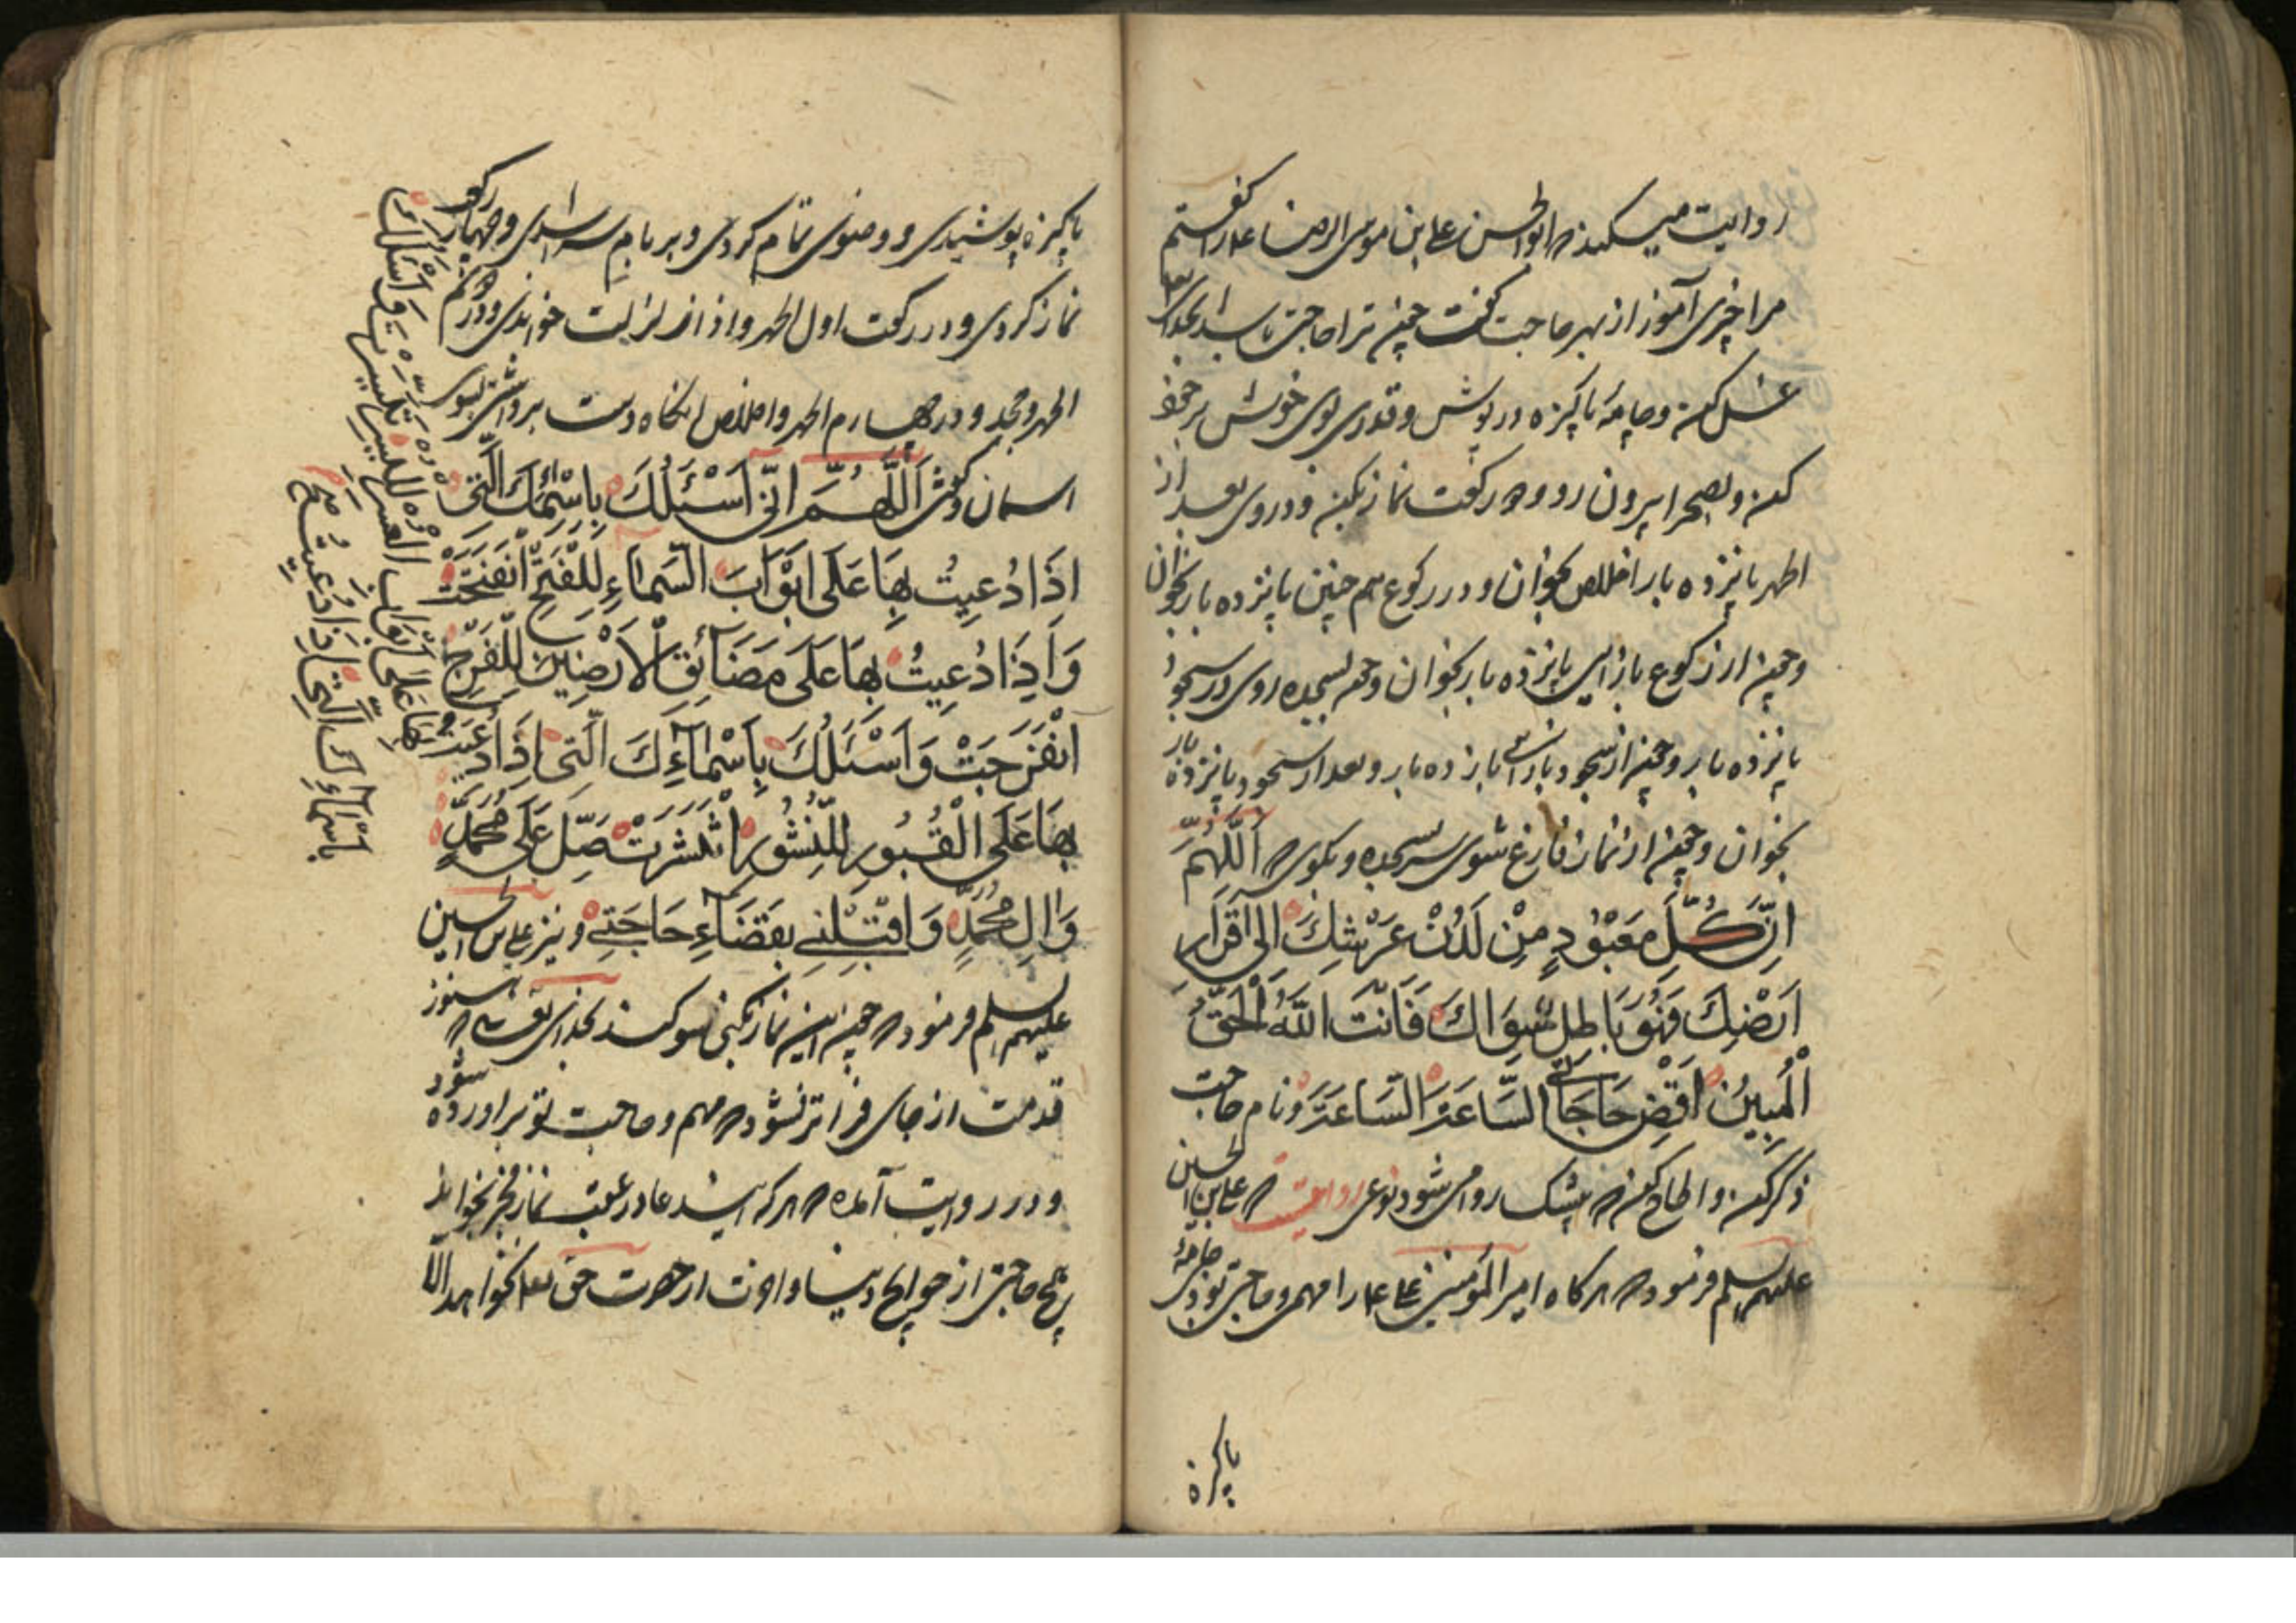 روایت میکند که ابوالحسن علی بن موسی الرضا ع را گفتم
مرا چیزی آموز از بهر حاجت گفت چون ترا حاجتی باشد بخدای
غسل کن و جامهٔ پاکیزه درپوش و قدری بوی خوش بر خود
کن و بصحرا بیرون رو و دو رکعت نماز بکن و در وی بعد از
الحمد پانزده بار اخلاص بخوان و در رکوع هم چنین پانزده بار بخوان
و چون از رکوع باز ایستی پانزده بار بخوان و چون بسجده روی در سجود
پانزده بار و چون از سجود باز پانزده بار و بعد از سجود پانزده بار
بخوان و چون از نماز فارغ شوی سر بسجده و بگوی که اَللّٰهُمَّ
اِنَّ كُلَّ مَعْبُودٍ مِنْ لَدُنْ عَرْشِكَ اِلى قَرَارِ
اَرْضِكَ فَهُوَ بَاطِلٌ سِوَاكَ فَاَنْتَ اللّٰهُ الْحَقُّ
الْمُبِينُ اقْضِ حَاجَاتِي السَّاعَةَ السَّاعَةَ و نام حاجت
ذکر کن و الحاح کن که بیشک روا می شود نوعی روایت که علی بن الحسین
علیهم السلم فرمود که هرگاه امیر المؤمنین علی ع را مهمی و حاجتی بودی جامهٔ
پاکیزه
پاکیزه پوشیدی و وضوی تمام کردی و بر بام سرا شدی و چهار رکعت
نماز کردی و در رکعت اول الحمد و اذا زلزلت خواندی و در دوم
الحمد و و در چهارم الحمد و اخلاص آنگاه دست برداشتی بسوی
اسمان و گفتی اَللّٰهُمَّ اِنّى اَسْئَلُكَ بِاَسْمَائِكَ الَّتى
اِذَا دُعِيتُ بِهَا عَلَى اَبْوَابِ السَّمَاءِ لِلْفَتْحِ انْفَتَحَتْ
وَاِذَا دُعِيتُ بِهَا عَلَى مَضَائِقِ الْاَرَضِينَ لِلْفَرَجِ
انْفَرَجَتْ وَاَسْئَلُكَ بِاَسْمَاءِكَ الَّتى اِذَا دُعِيتُ
بِهَا عَلَى الْقُبُورِ لِلنُّشُورِ انْتَشَرَتْ صَلِّ عَلَى مُحَمَّدٍ
وَالِ مُحَمَّدٍ وَاقْلِبْنِي بِقَضَاءِ حَاجَتِي و نیز علی بن الحسین
علیهم السلم فرمود که چون این نماز بکنی سوگند بخدای تعالی که هنوز
قدمت از جای فراتر نشود که مهم و حاجت تو براورده شود
و در روایت آمده که هر که این دعا در عقب نماز فجر بخواند
هیچ حاجتی از حوایج دنیا و اخرت از حضرت حق تعالی نخواهد الّا
وَاَسْئَلُكَ
بِاَسْمَاءِكَ الَّتى اِذَا دُعِيتُ
بِهَا عَلَى اَبْوَابِ الْعُسْرِ لِلْيُسْرِ تَيَسَّرَتْ
صح